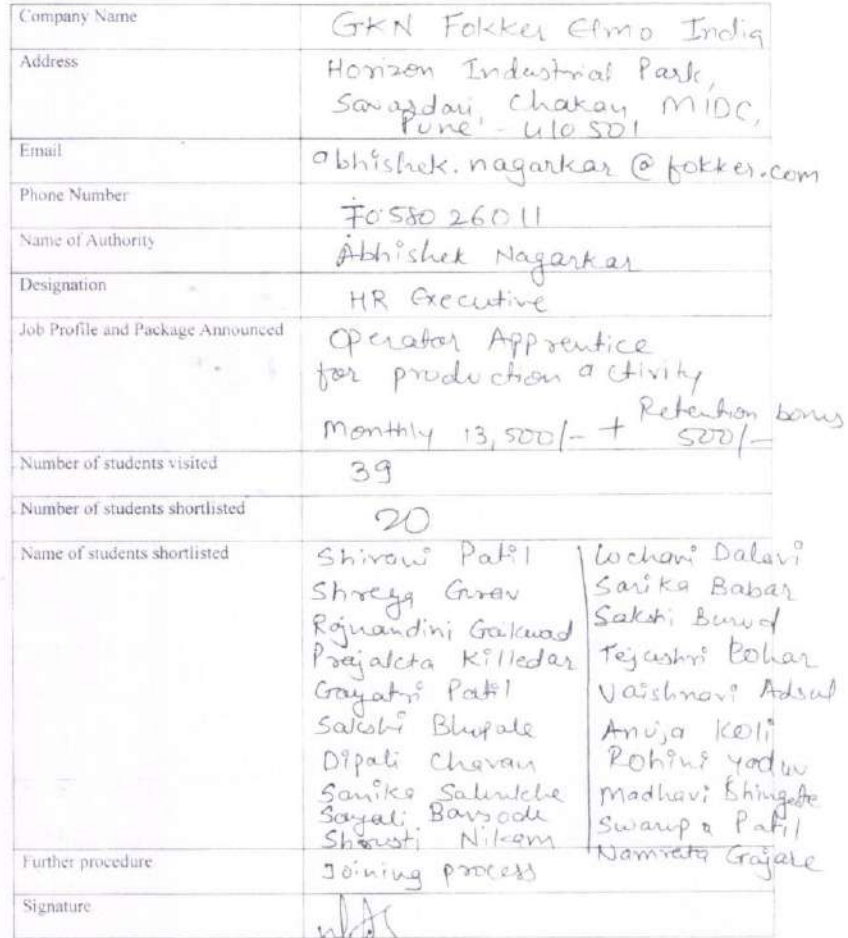 Company Name GKN Fokker Elmo India
Address Horizon Industrial Park,
Savardari, Chakan MIDC,
Pune - 410 501
Email abhishek.nagarkar@fokker.com
Phone Number 7058026011
Name of Authority Abhishek Nagarkar
Designation HR Executive
Job Profile and Package Announced Operator Apprentice
for production activity
Monthly 13,500/- + Retention bonus 500/-
Number of students visited 39
Number of students shortlisted 20
Name of students shortlisted
Shivani Patil
Shreya Gurav
Rajnandini Gaikwad
Prajakta Killedar
Gayatri Patil
Sakshi Bhopale
Dipali Chavan
Sanika Salunkhe
Sayali Barsode
Shrusti Nikam
Dalavi
Sarika Babar
Sakshi Burud
Tejashri Lohar
Vaishnavi Adsul
Anuja Koli
Rohini Yadav
Madhavi Shingate
Swarupa Patil
Namrata Gajare
Further procedure Joining process
Signature